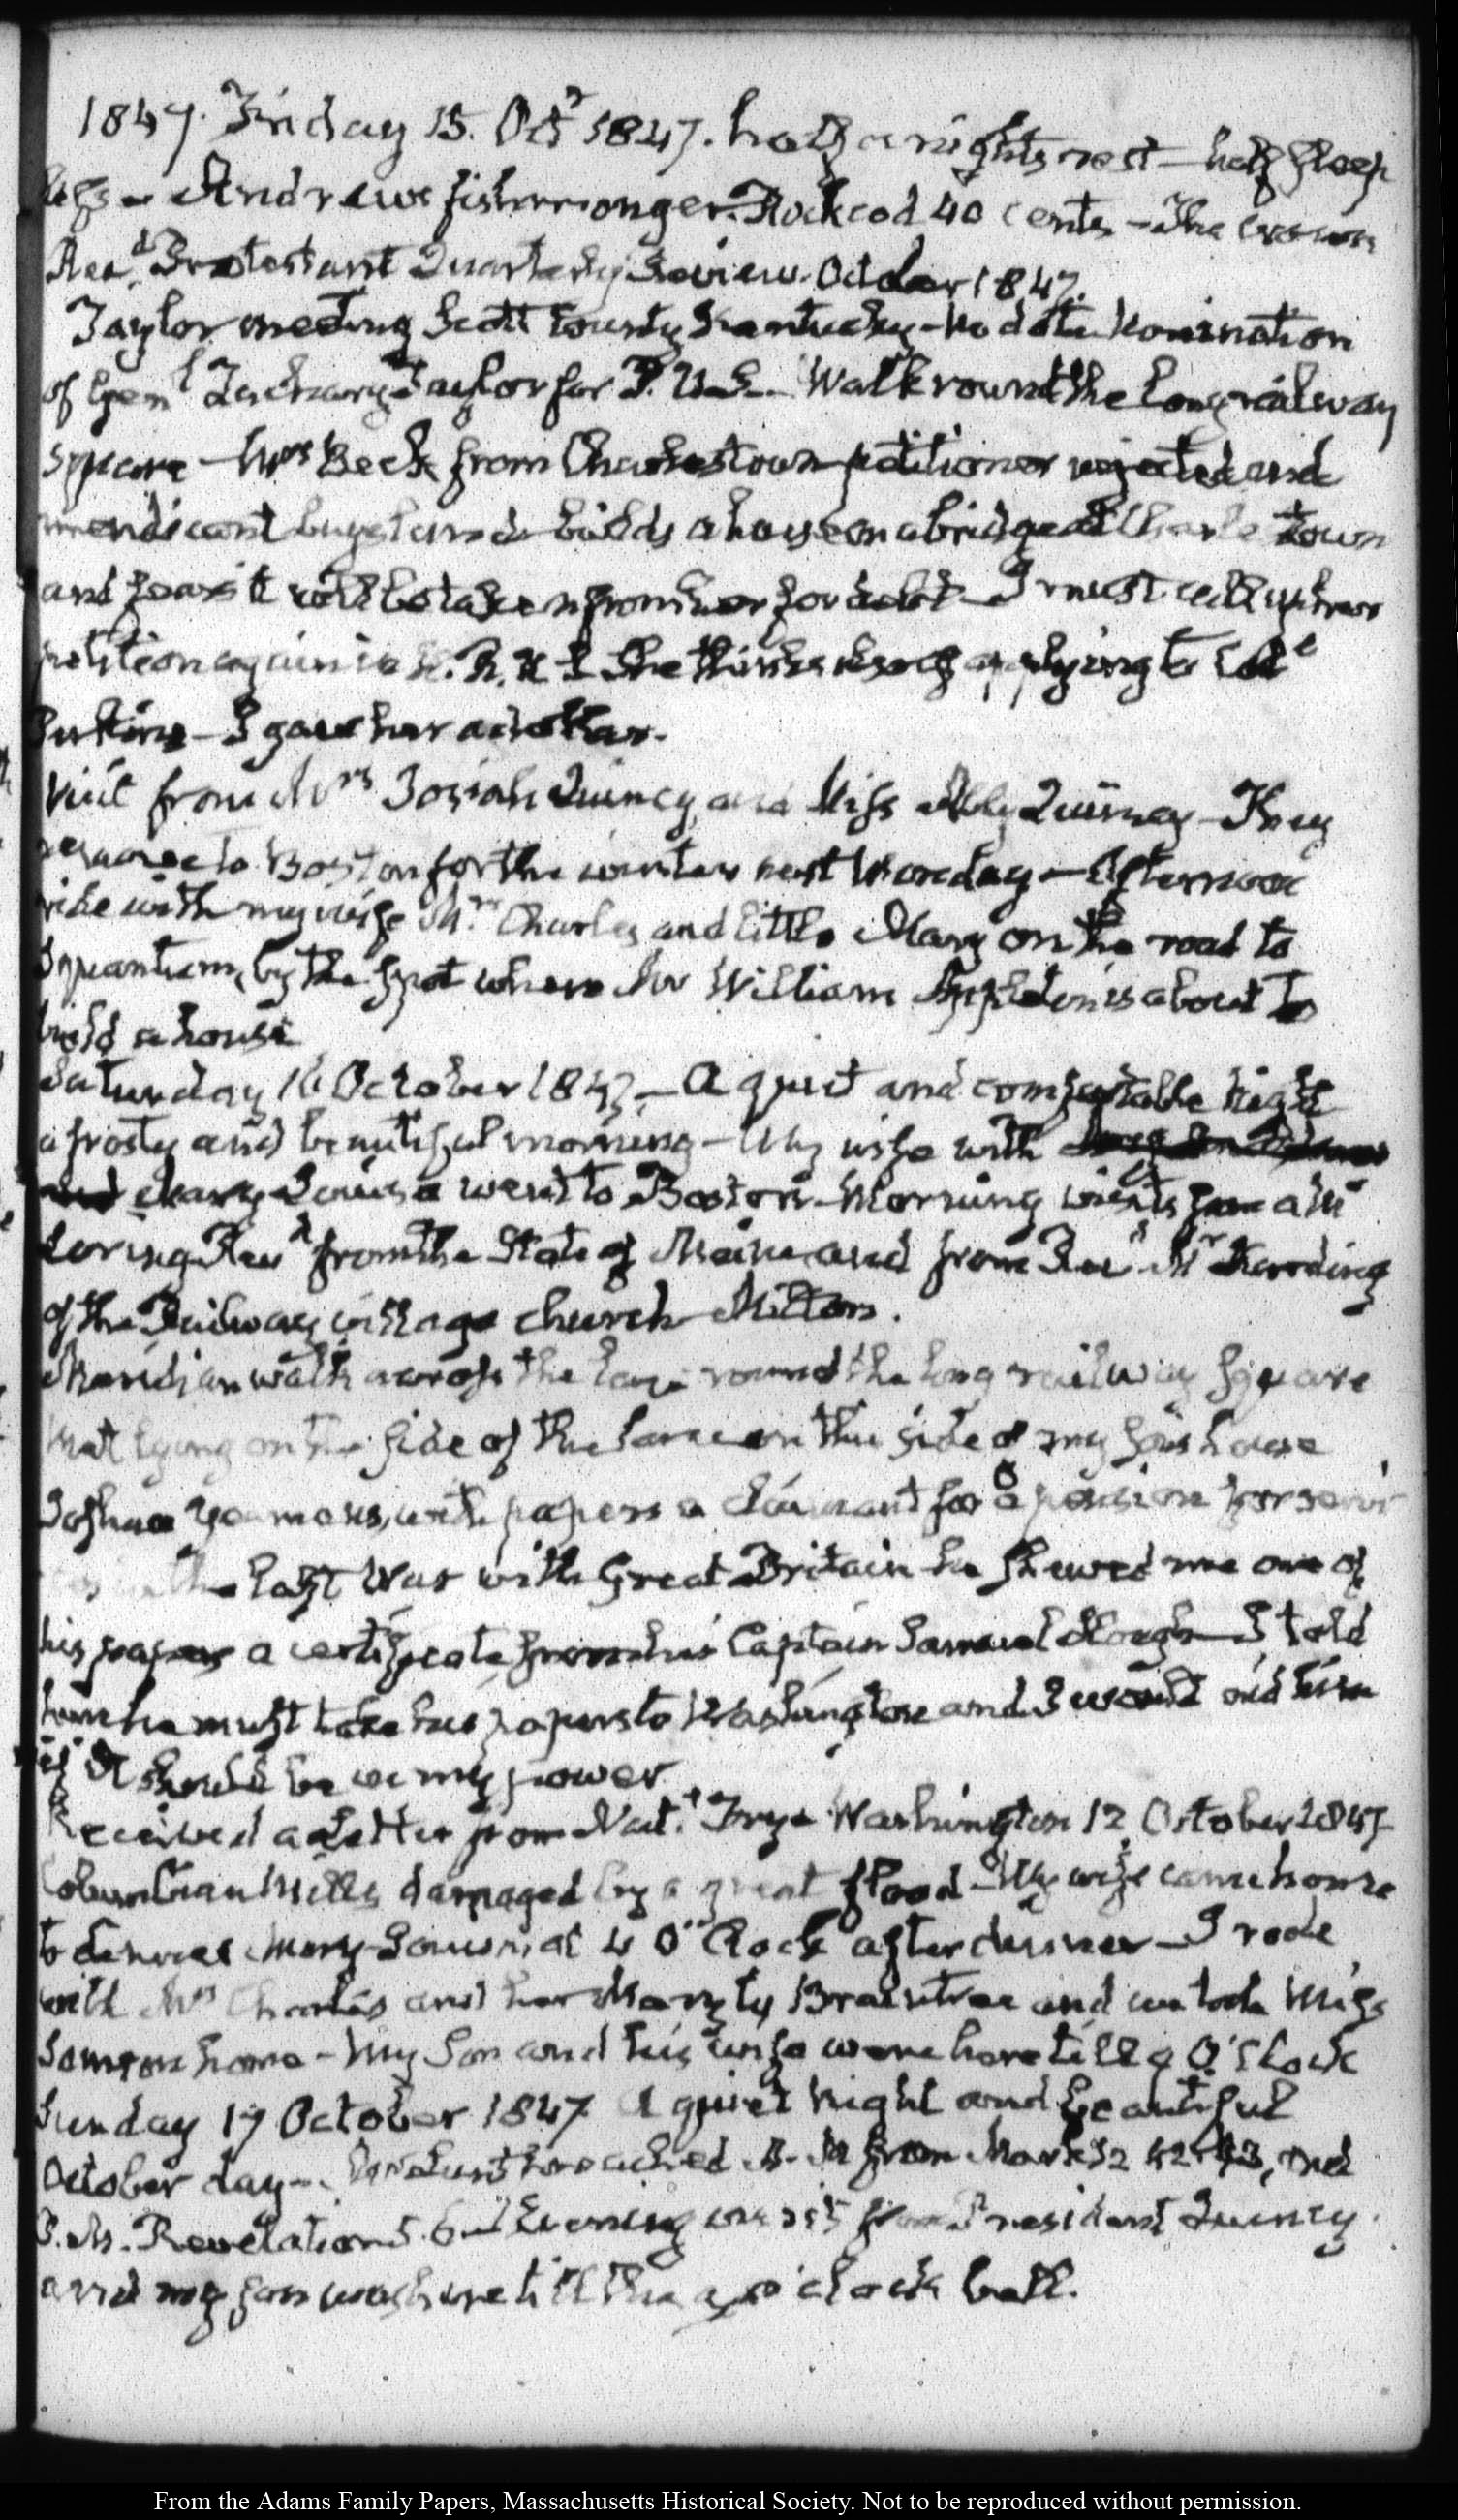 1847. Friday 15. Octr 1847. half a nights rest — half sleep
less — Andrews fishmonger. Rock cod 40 cents — The
Read Protestant Quarterly Review. October 1847.
Taylor meeting Scott County Kentucky — no date Nomination
of Genl Zachary Taylor for P. U.S. Walk round the long railway
square — Mrs Beck from Charlestown petitioner rejected and
mendicant builds a house on a bridge at Charlestown
and fears it will be taken from her for debt — I must call up her
petition again in H. R. U S She thinks herself applying to Coll
Perkins — I gave her a dollar.
Visit from Mrs Josiah Quincy, and Miss Abby Quincy — They
remove to Boston for the winter next Monday — Afternoon
ride with my wife Mrs Charles and little Mary on the road to
Squantum, by the spot where Mr William Appleton is about to
build a house
Saturday 16 October 1847. — A quiet and comfortable night
a frosty and beautiful morning — My wife with
Mary Louisa went to Boston. Morning visits from a Mr
Loring Revd from the State of Maine and from Revd Mr
of the Railway village church Milton.
Meridian walk across the lane round the long railway square
that lying on the side of the lane on the side of my sons house
Joshua Yeomans, with papers a claimant for a pension for
the last War with Great Britain he shewed me one of
his papers a certificate from his Captain Samuel — I told
him he must take his papers to Washington and I would aid him
if it should be in my power
Received a Letter from Natl. Frye Washington 12 October 1847
Columbian Mills damaged by a great flood — My wife came home
to dinner Mary Louisa at 4 O'Clock after dinner — I rode
with Mrs Charles and her Mary to Braintree and we took Miss
home — My Son and his wife were here till 9 O'Clock
Sunday 17 October 1847. A quiet night and beautiful
October day — Lunt preached A. M from Mark 12 42 43, and
P. M. Revelation 5. 6 — Evening visit from President Quincy.
and my son was here till the 9 o'clock bell.
From the Adams Family Papers, Massachusetts Historical Society. Not to be reproduced without permission.